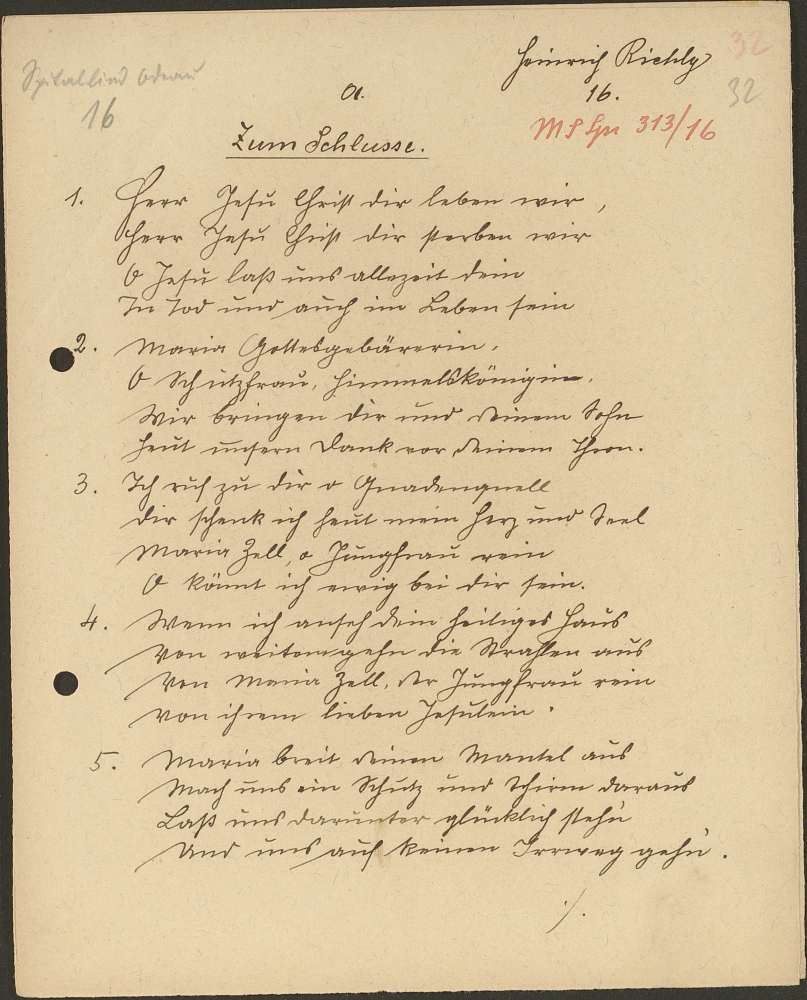 Heinrich Richly
32
Spitallied Odrau
a.
16.
32
16
MS Spr 313/16
Zum Schlusse.
1. Herr Jesu Christ dir leben wir,
Herr Jesu Christ dir sterben wir
O Jesu laß uns allezeit dein
In Tod und auch im Leben sein
2. Maria Gottesgebärerin,
O Schutzfrau, Himmelskönigin,
Wir bringen dir und deinem Sohn
Heut unsern Dank vor deinem Thron.
3. Ich ruf zu dir o Gnadenquell
Dir schenk ich heut mein Herz und Seel
Maria Zell, o Jungfrau rein
O könnt ich ewig bei dir sein.
4. Wenn ich anseh dein heiliges Haus
Von weitem gehn die Strahlen aus
Von Maria Zell, der Jungfrau rein
Von ihrem lieben Jesulein.
5. Maria breit deinen Mantel aus
Mach uns ein Schutz und Schirm daraus
Laß uns darunter glücklich stehn
Und uns auf keinen Irrweg gehn.
./.